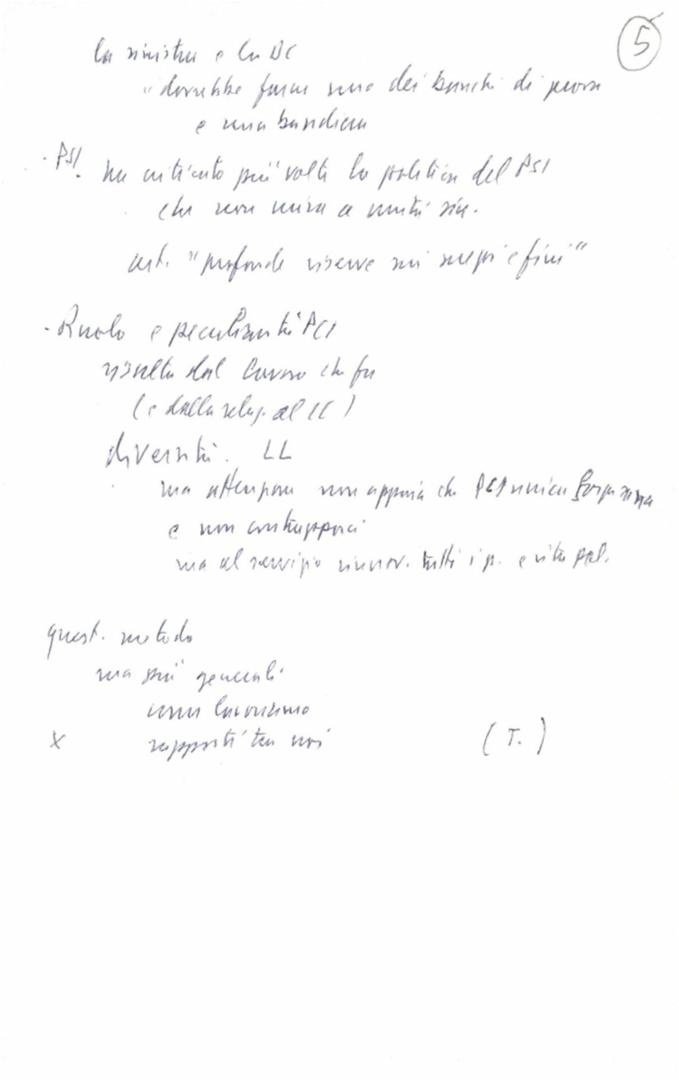 5
la sinistra e la DC
"dovrebbe farne uno dei banchi di prova
e una bandiera
· PSI. ha criticato più volte la politica del PSI
che non mira a unità sin.
art. "profonde riserve sui mezzi e fini"
· Ruolo e peculiarità PCI
risulta dal lavoro che fa
(e dalla relaz. al CC)
diversità. LL
ma attenzione non appaia che PCI unica forza sana
e non contrapporci
ma al servizio rinnov. tutti i p. e vita pol.
quest. metodo
ma più generali
come lavoriamo
x rapporti tra noi (T.)